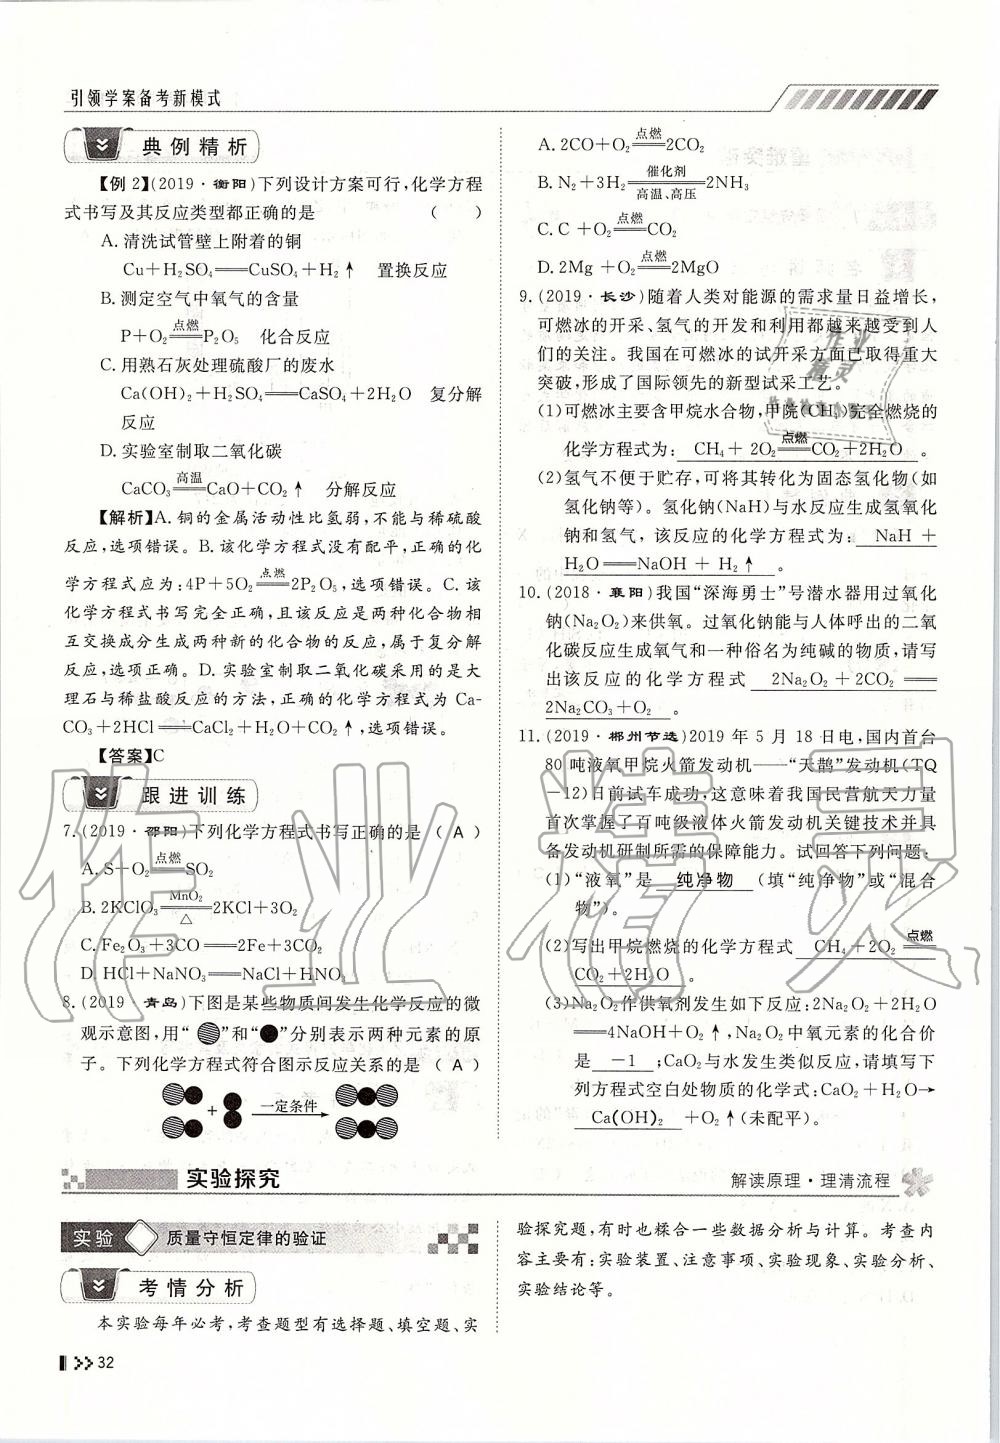 引领学案备考新模式
典例精析
【例2】(2019·衡阳)下列设计方案可行,化学方程
式书写及其反应类型都正确的是 ( )
A. 清洗试管壁上附着的铜
Cu+H₂SO₄═CuSO₄+H₂↑ 置换反应
B. 测定空气中氧气的含量
P+O₂═点燃═P₂O₅ 化合反应
C. 用熟石灰处理硫酸厂的废水
Ca(OH)₂+H₂SO₄═CaSO₄+2H₂O 复分解
反应
D. 实验室制取二氧化碳
CaCO₃═高温═CaO+CO₂↑ 分解反应
【解析】A. 铜的金属活动性比氢弱,不能与稀硫酸
反应,选项错误。B. 该化学方程式没有配平,正确的化
学方程式应为:4P+5O₂═点燃═2P₂O₅,选项错误。C. 该
化学方程式书写完全正确,且该反应是两种化合物相
互交换成分生成两种新的化合物的反应,属于复分解
反应,选项正确。D. 实验室制取二氧化碳采用的是大
理石与稀盐酸反应的方法,正确的化学方程式为 Ca-
CO₃+2HCl═CaCl₂+H₂O+CO₂↑,选项错误。
【答案】C
跟进训练
7. (2019·邵阳)下列化学方程式书写正确的是 ( A )
A. S+O₂═点燃═SO₂
B. 2KClO₃═MnO₂/△═2KCl+3O₂
C. Fe₂O₃+3CO═2Fe+3CO₂
D. HCl+NaNO₃═NaCl+HNO₃
8. (2019·青岛)下图是某些物质间发生化学反应的微
观示意图,用“ ”和“ ”分别表示两种元素的原
子。下列化学方程式符合图示反应关系的是 ( A )
+ 一定条件
A. 2CO+O₂═点燃═2CO₂
B. N₂+3H₂═催化剂/高温、高压═2NH₃
C. C +O₂═点燃═CO₂
D. 2Mg +O₂═点燃═2MgO
9. (2019·长沙)随着人类对能源的需求量日益增长,
可燃冰的开采、氢气的开发和利用都越来越受到人
们的关注。我国在可燃冰的试开采方面已取得重大
突破,形成了国际领先的新型试采工艺。
(1)可燃冰主要含甲烷水合物,甲烷(CH₄)完全燃烧的
化学方程式为: CH₄+ 2O₂═点燃═CO₂+2H₂O 。
(2)氢气不便于贮存,可将其转化为固态氢化物(如
氢化钠等)。氢化钠(NaH)与水反应生成氢氧化
钠和氢气,该反应的化学方程式为: NaH +
H₂O═NaOH + H₂↑ 。
10. (2018·襄阳)我国“深海勇士”号潜水器用过氧化
钠(Na₂O₂)来供氧。过氧化钠能与人体呼出的二氧
化碳反应生成氧气和一种俗名为纯碱的物质,请写
出该反应的化学方程式 2Na₂O₂+2CO₂═
2Na₂CO₃+O₂ 。
11. (2019·郴州节选)2019 年 5 月 18 日电,国内首台
80 吨液氧甲烷火箭发动机——“天鹊”发动机(TQ
-12)日前试车成功,这意味着我国民营航天力量
首次掌握了百吨级液体火箭发动机关键技术并具
备发动机研制所需的保障能力。试回答下列问题:
(1)“液氧”是 纯净物 (填“纯净物”或“混合
物”)。
(2)写出甲烷燃烧的化学方程式 CH₄+2O₂═点燃═
CO₂+2H₂O 。
(3)Na₂O₂作供氧剂发生如下反应:2Na₂O₂+2H₂O
═4NaOH+O₂↑,Na₂O₂中氧元素的化合价
是 -1 ;CaO₂与水发生类似反应,请填写下
列方程式空白处物质的化学式:CaO₂+H₂O→
Ca(OH)₂ +O₂↑(未配平)。
实验探究
解读原理·理清流程
实验 质量守恒定律的验证
考情分析
本实验每年必考,考查题型有选择题、填空题、实
验探究题,有时也糅合一些数据分析与计算。考查内
容主要有:实验装置、注意事项、实验现象、实验分析、
实验结论等。
32
作业精灵